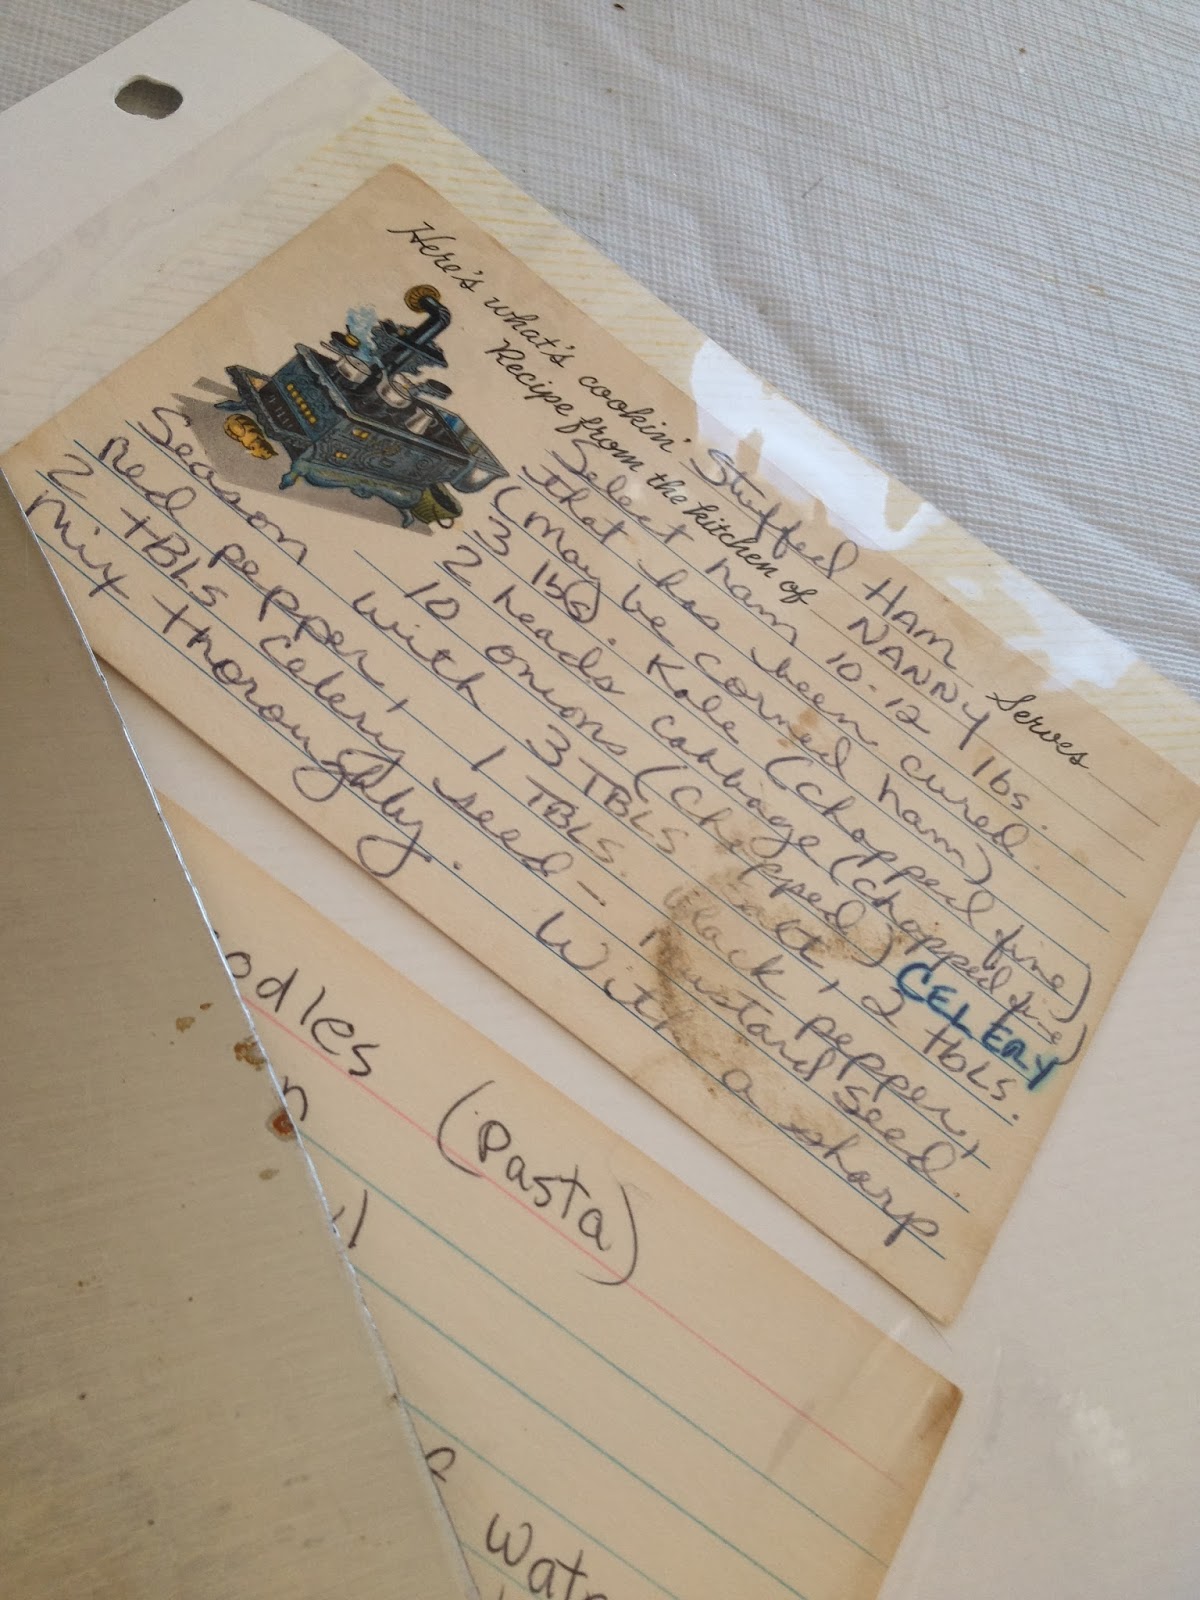 Here's what's cookin' Stuffed Ham Serves
Recipe from the kitchen of NANNY
Select ham 10-12 lbs.
that has been cured.
(May be corned ham)
3 lbs. Kale (chopped fine)
2 heads cabbage (chopped fine)
10 onions (chopped) CELERY
Season with 3 TBLS salt, 2 tbLS.
Red pepper, 1 TBLS. black pepper,
2 TBLS celery seed – mustard seed.
Mix thoroughly. With a sharp
odles (Pasta)
n
Wate